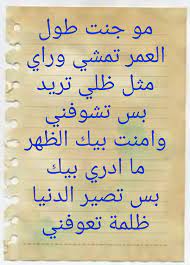 مو جنت طول
العمر تمشي وراي
مثل ظلي تريد
بس تشوفني
وامنت بيك الظهر
ما ادري بيك
بس تصير الدنيا
ظلمة تعوفني